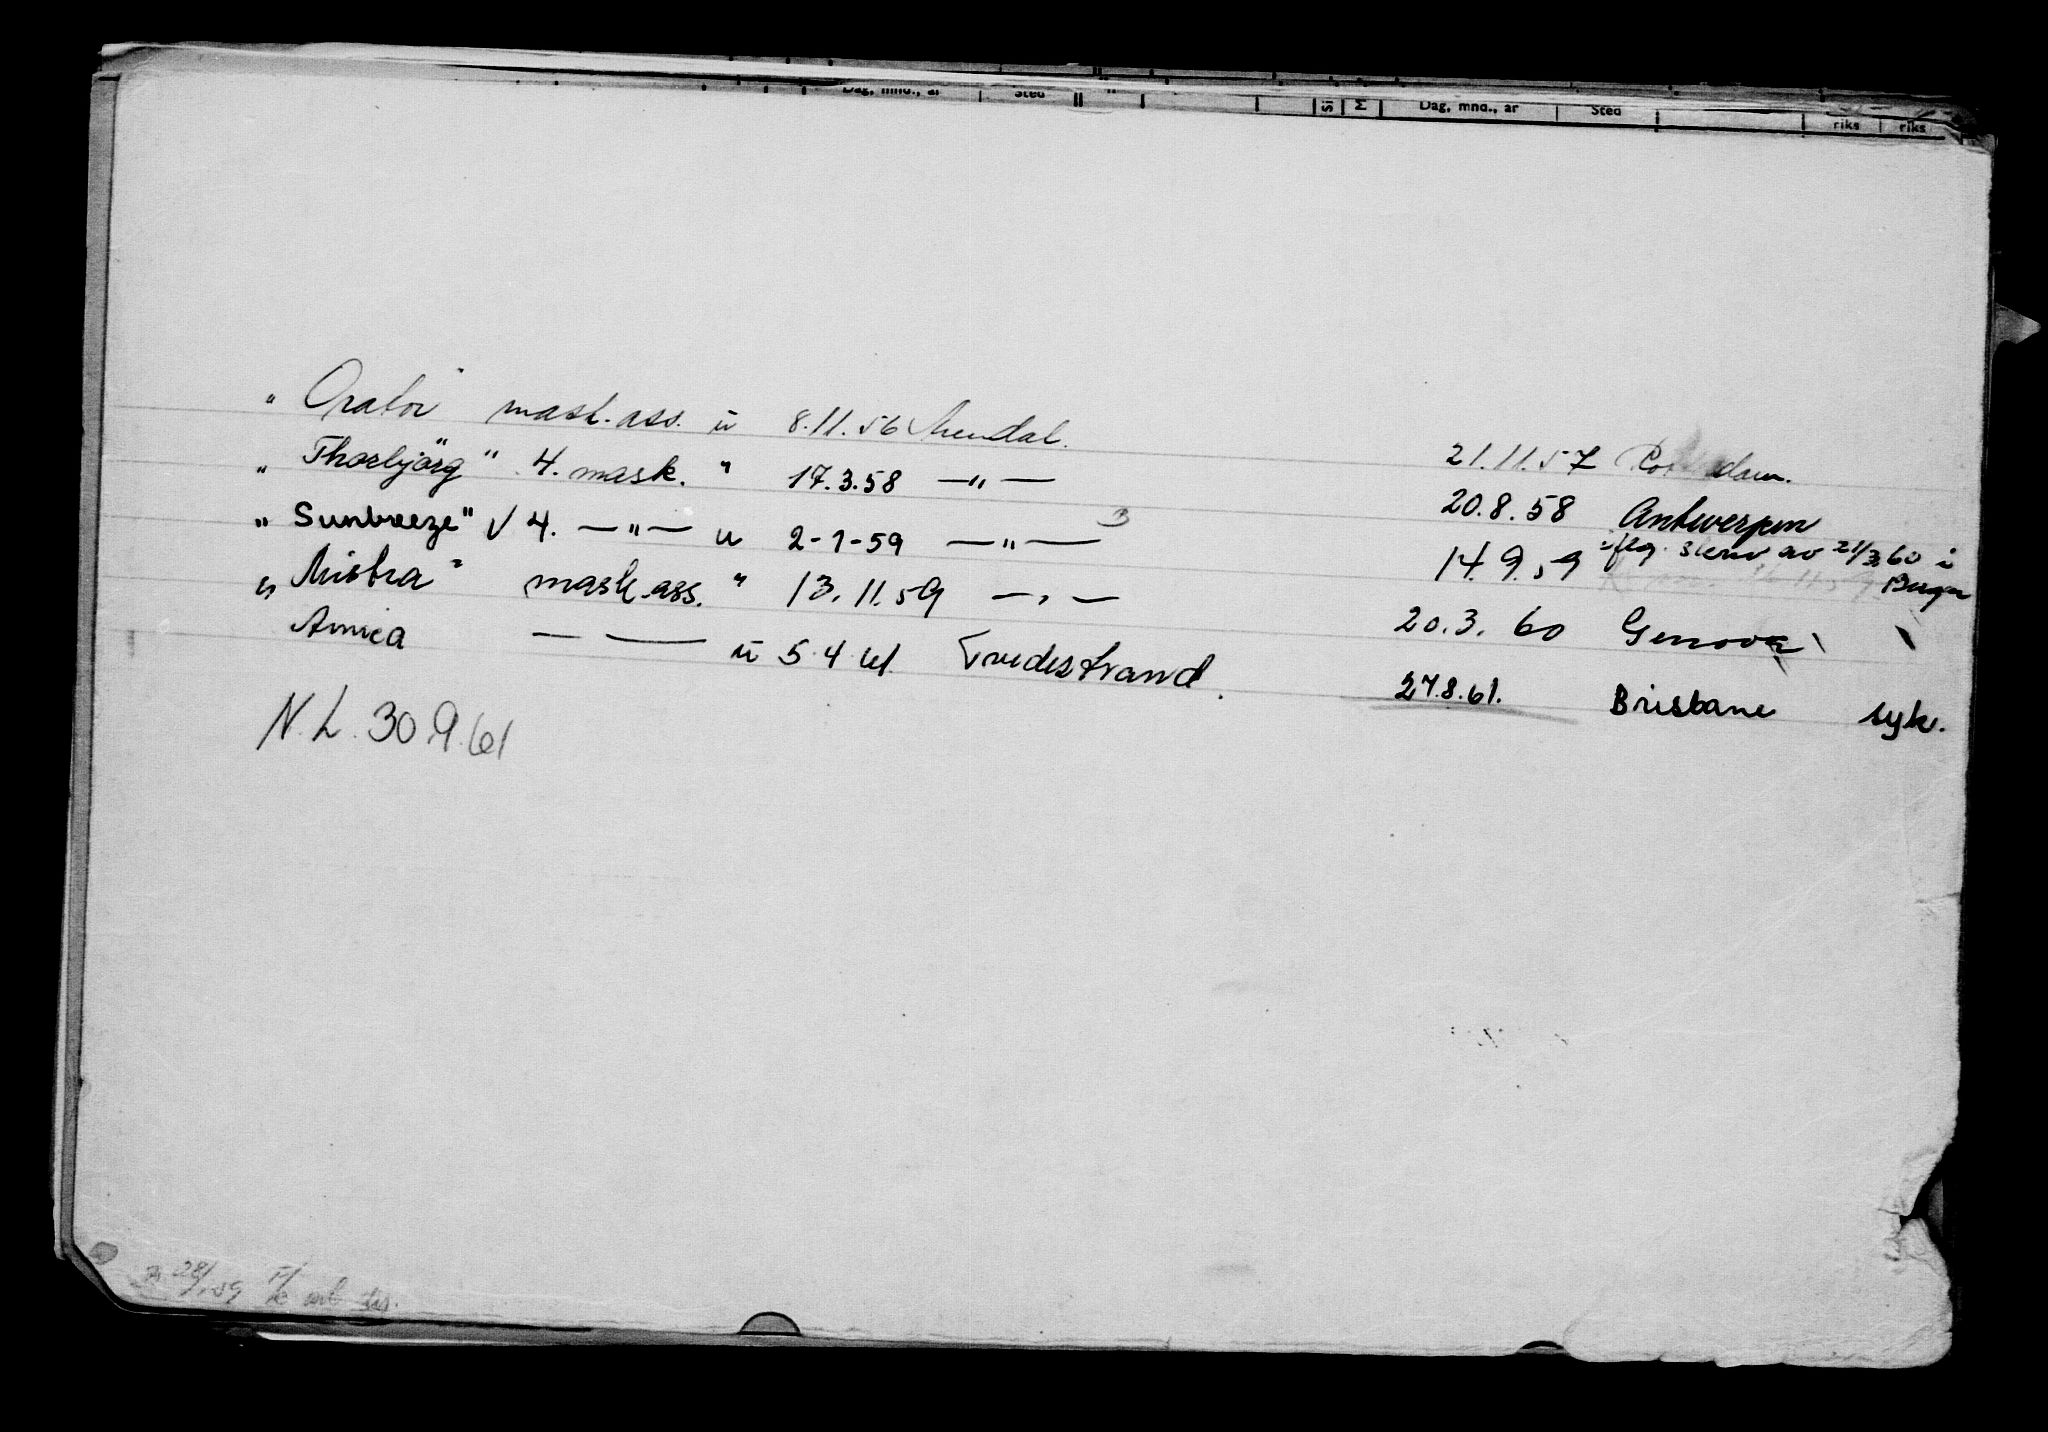 Dag, mnd., år Sted Dag, mnd., år Sted riks riks
„ Orator" mask. ass. u 8.11.56 Arendal. 21.11.57
„ Thorbjörg" 4. mask. " 17.3.58 —„— 20.8.58 Antwerpen
„ Sunbreeze" √ 4. —„— u 2-1-59 —„— 14.9.59 flg. skriv av 21/3.60 i
„ Mistra" mask. ass. " 13.11.59 —„— 20.3.60 Genova
Amica — — u 5.4.61 Tvedestrand. 27.8.61. Brisbane syk.
N.L. 30.9.61